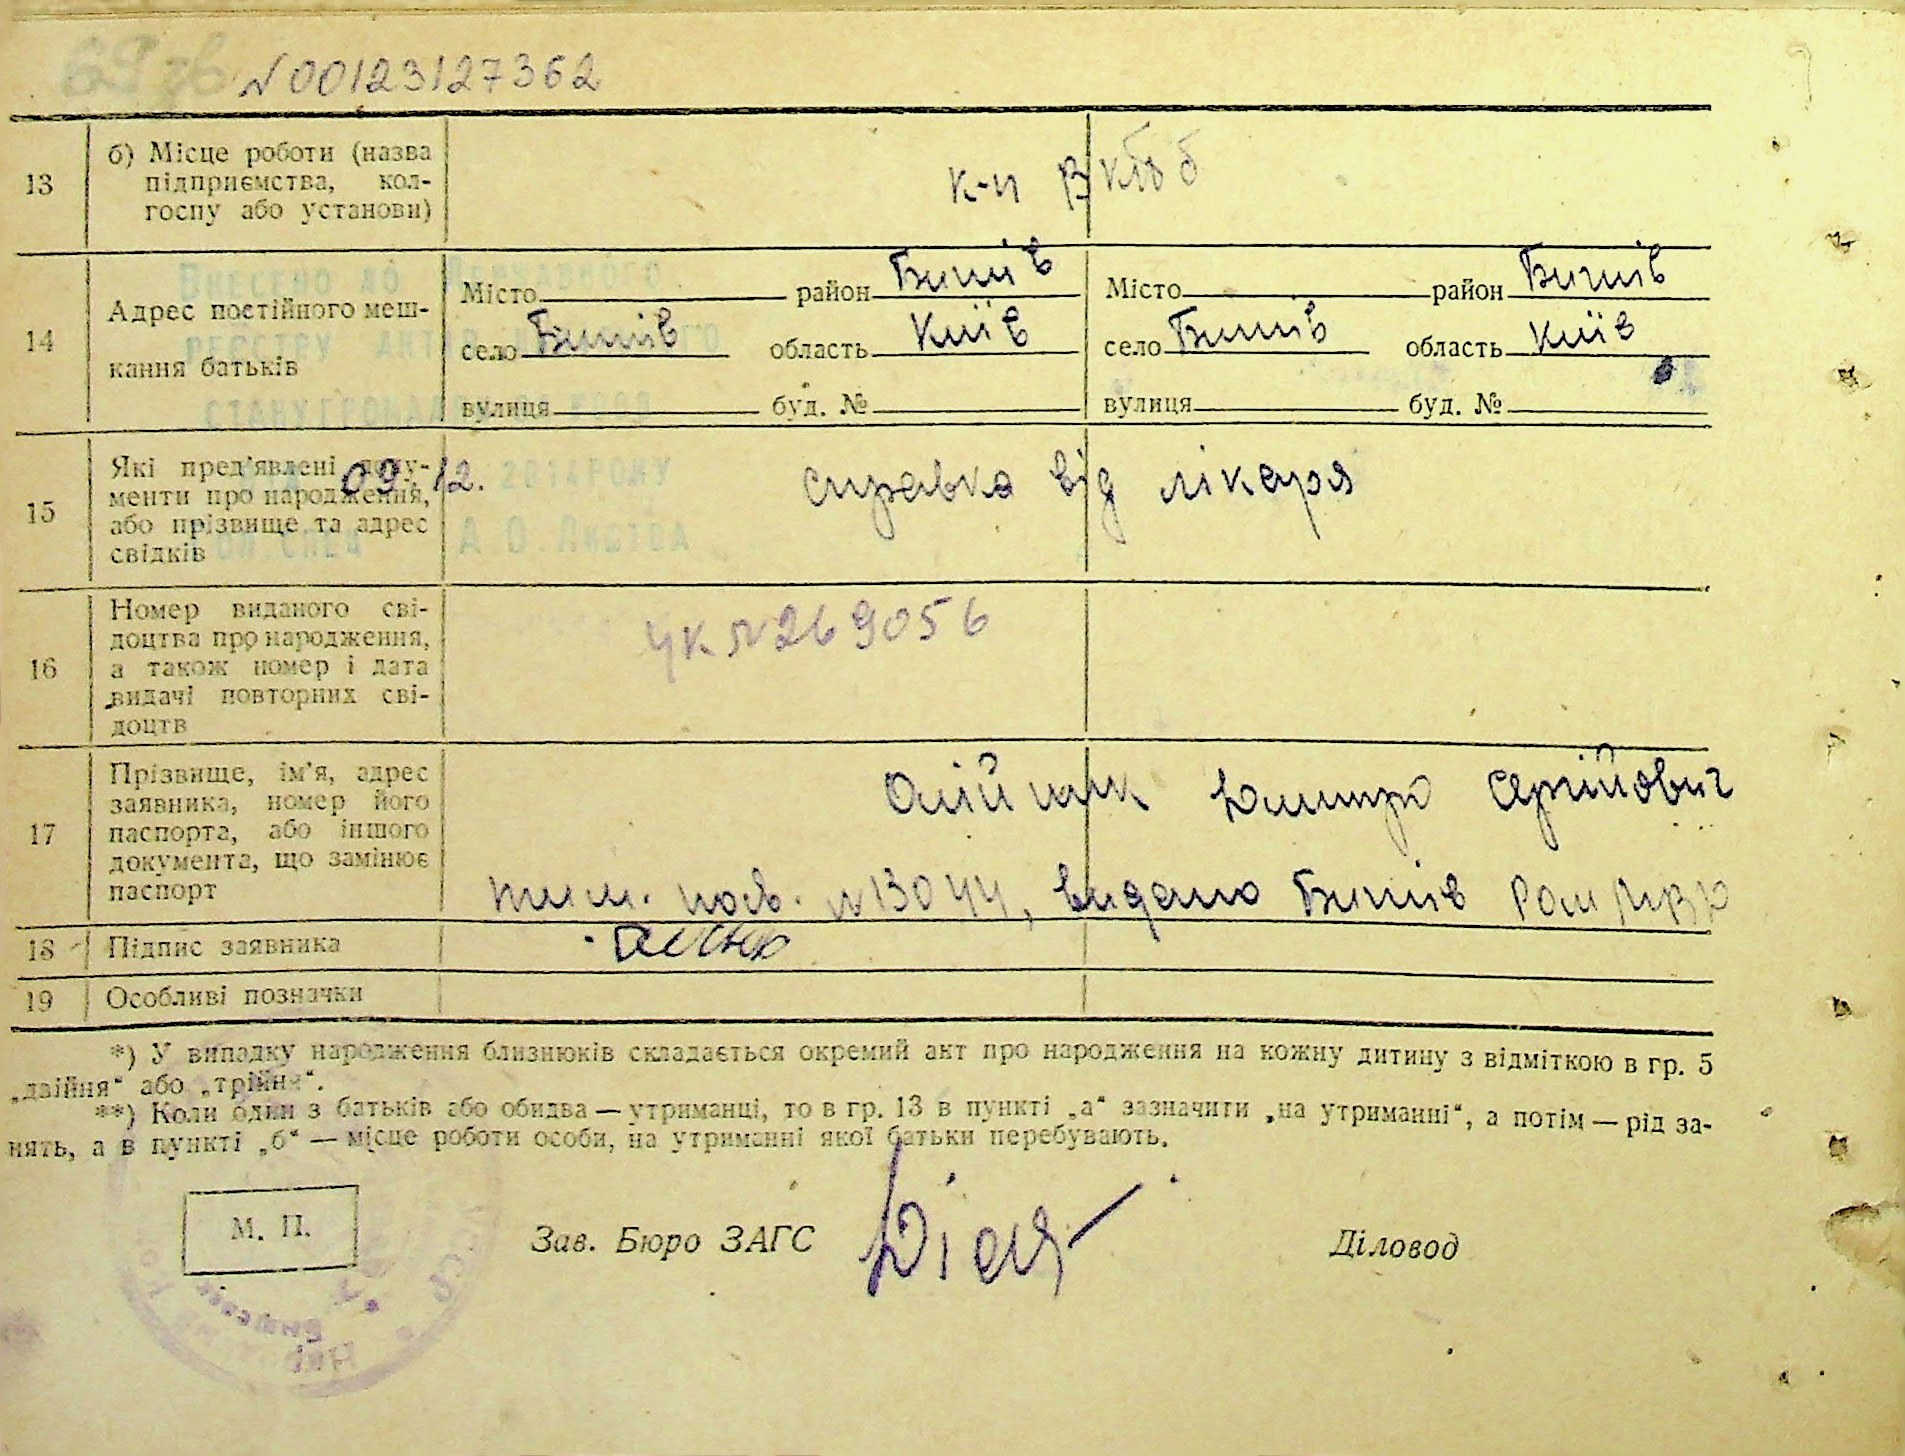 N00123127362
13
б) Місце роботи (назва
підприємства, кол-
госпу або установи)
к-п
14
Адрес постійного меш-
кання батьків
Місто район Бишів
село Бишів область Київ
вулиця буд. №
Місто район Бишів
село Бишів область Київ
вулиця буд. №
Внесено до Державного
реєстру актів
стану громадян
09.12. 2014 року
А.О. Листва
15
Які пред'явлені доку-
менти про народження,
або прізвище та адрес
свідків
справка від лікаря
16
Номер виданого сві-
доцтва про народження,
а також номер і дата
видачі повторних сві-
доцтв
УК N269056
17
Прізвище, ім'я, адрес
заявника, номер його
паспорта, або іншого
документа, що замінює
паспорт
Олійник Дмитро Сергійович
тим. посв. N13044, видано Бишів
18
Підпис заявника
19
Особливі позначки
*) У випадку народження близнюків складається окремий акт про народження на кожну дитину з відміткою в гр. 5
„двійня“ або „трійня“.
**) Коли один з батьків або обидва — утриманці, то в гр. 13 в пункті „а“ зазначити „на утриманні“, а потім — рід за-
нять, а в пункті „б“ — місце роботи особи, на утриманні якої батьки перебувають.
М. П.
Зав. Бюро ЗАГС
Діловод